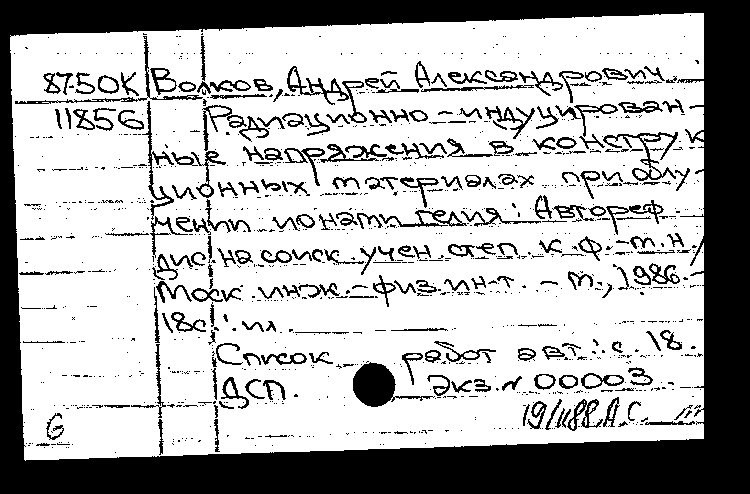 87-5OK Волков, Андрей Александрович.
11856 Радиационно-индуцирован-
ные напряжения в конструк
ционных материалах при облу-
чении ионами гелия: Автореф.
дис. на соиск. учен. степ. к.ф.-м.н./
Моск. инж.-физ. ин-т. - М., 1986.-
18с.: ил.
Список работ авт.: с. 18.
ДСП. Экз. № 00003.
6 19/II 88. А.С.